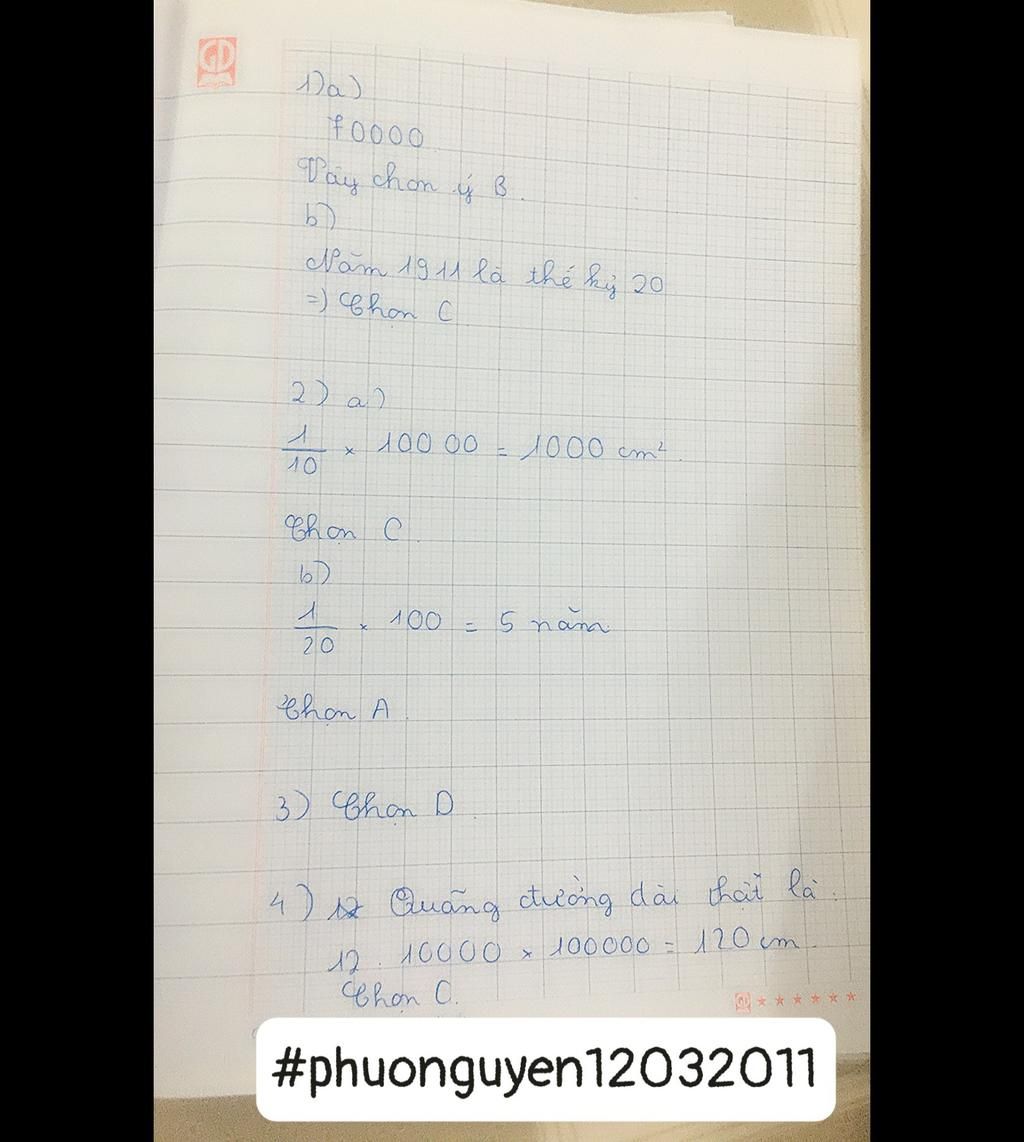 GD
1)a)
70000
Vậy chọn ý B.
b)
Năm 1911 là thế kỷ 20
=) Chọn C
2) a)
1/10 × 10000 = 1000 cm².
Chọn C.
b)
1/20 × 100 = 5 năm
Chọn A.
3) Chọn D
4) Quãng đường dài thật là:
12 . 10000 × 100000 = 120 cm.
Chọn C.
#phuonguyen12032011